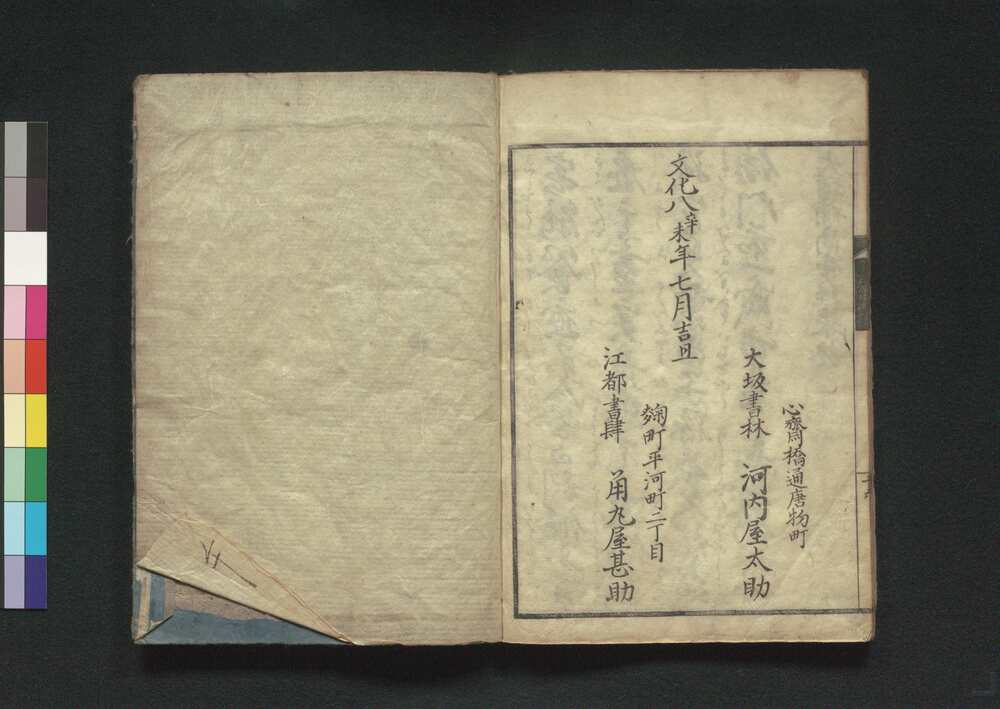 文化八辛未年七月吉旦
心齋橋通唐物町
大坂書林 河内屋太助
麹町平河町二丁目
江都書肆 角丸屋甚助